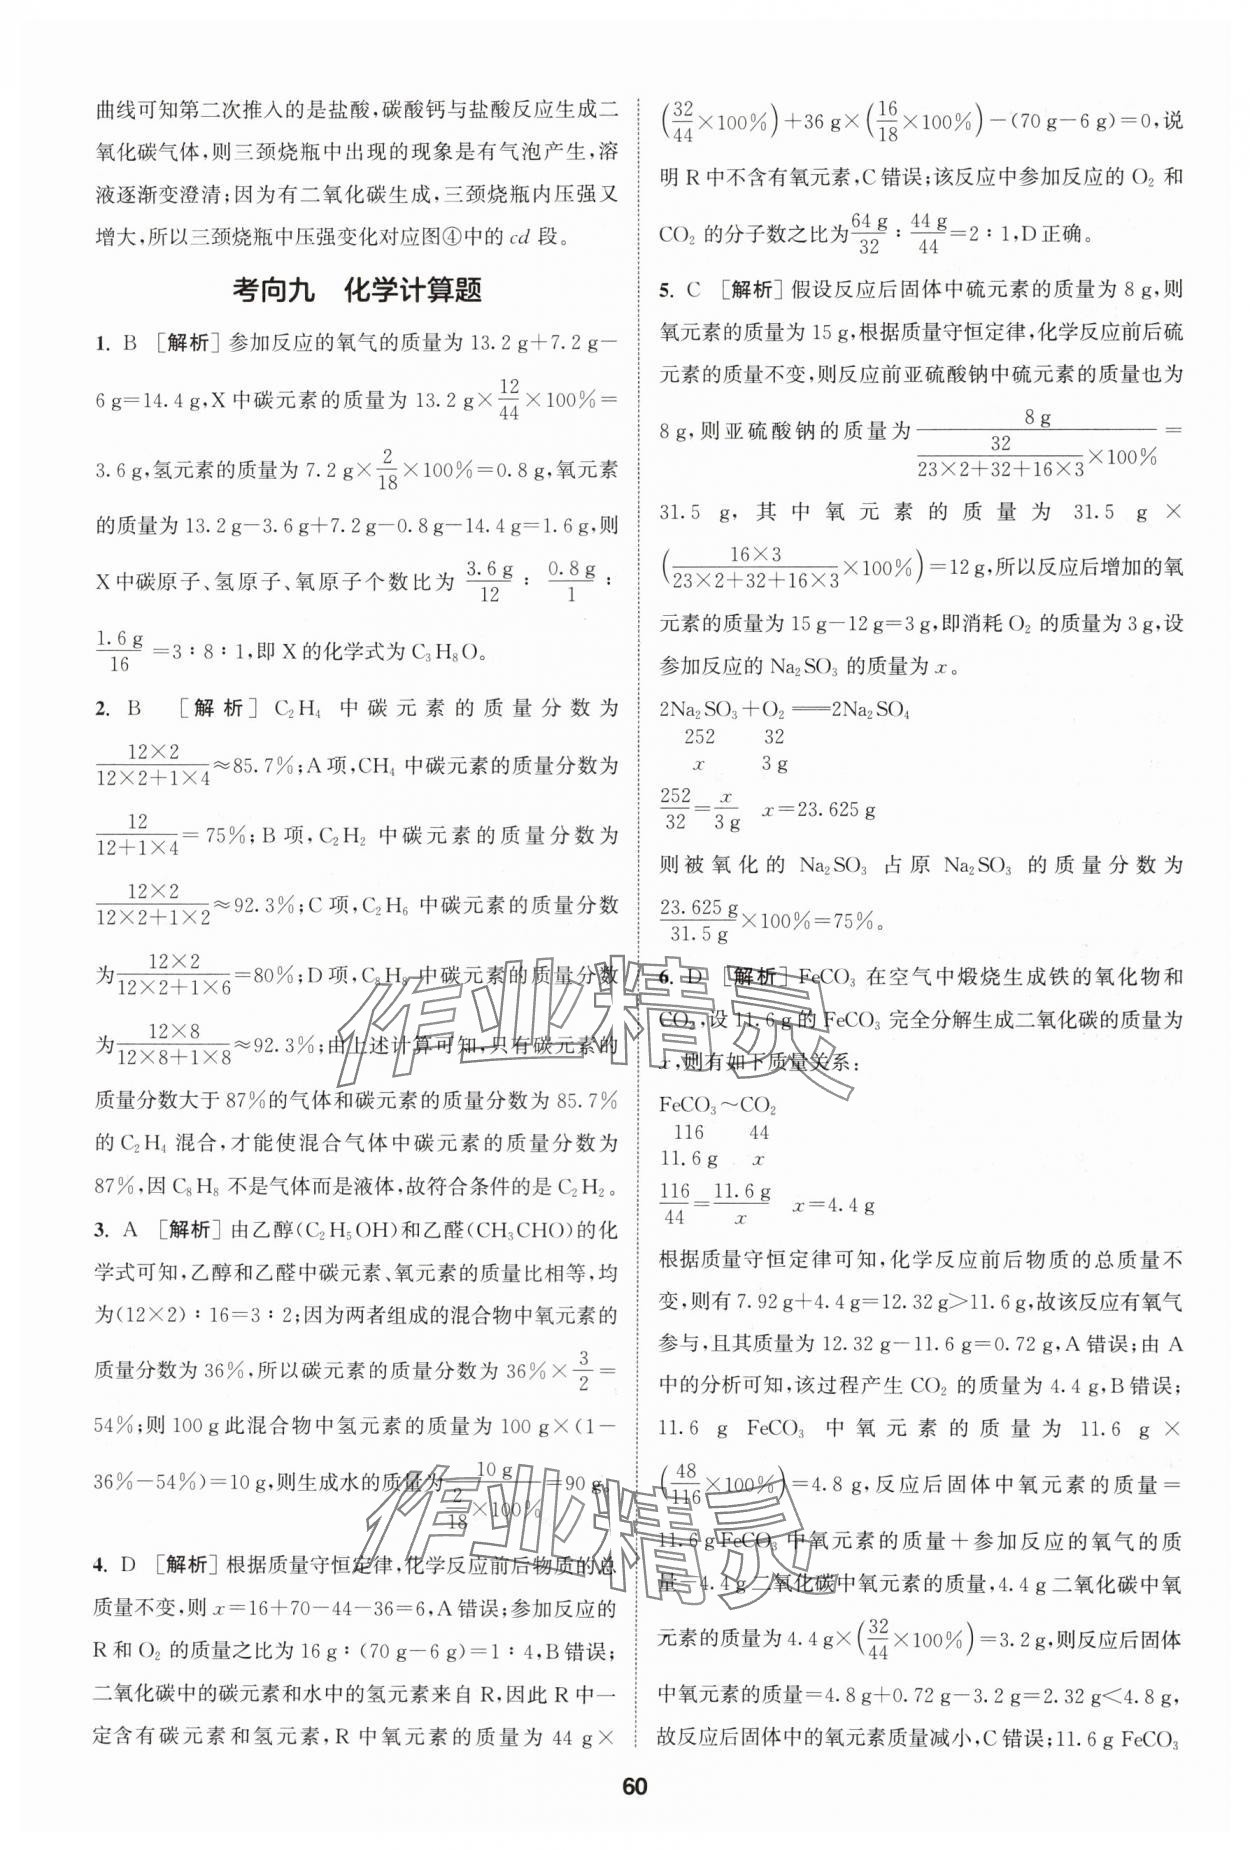 曲线可知第二次推入的是盐酸,碳酸钙与盐酸反应生成二
氧化碳气体,则三颈烧瓶中出现的现象是有气泡产生,溶
液逐渐变澄清;因为有二氧化碳生成,三颈烧瓶内压强又
增大,所以三颈烧瓶中压强变化对应图④中的 cd 段。
考向九 化学计算题
1. B [解析]参加反应的氧气的质量为 13.2 g+7.2 g−
6 g=14.4 g,X中碳元素的质量为 13.2 g×12/44×100%=
3.6 g,氢元素的质量为 7.2 g×2/18×100%=0.8 g,氧元素
的质量为 13.2 g−3.6 g+7.2 g−0.8 g−14.4 g=1.6 g,则
X中碳原子、氢原子、氧原子个数比为 3.6 g/12 : 0.8 g/1 :
1.6 g/16 =3:8:1,即 X 的化学式为 C₃H₈O。
2. B [解析]C₂H₄ 中碳元素的质量分数为
12×2/(12×2+1×4)≈85.7%;A项,CH₄ 中碳元素的质量分数为
12/(12+1×4)=75%;B项,C₂H₂ 中碳元素的质量分数为
12×2/(12×2+1×2)≈92.3%;C项,C₂H₆ 中碳元素的质量分数
为12×2/(12×2+1×6)=80%;D项,C₈H₈ 中碳元素的质量分数
为12×8/(12×8+1×8)≈92.3%;由上述计算可知,只有碳元素的
质量分数大于 87%的气体和碳元素的质量分数为 85.7%
的 C₂H₄ 混合,才能使混合气体中碳元素的质量分数为
87%,因 C₈H₈ 不是气体而是液体,故符合条件的是 C₂H₂。
3. A [解析]由乙醇(C₂H₅OH)和乙醛(CH₃CHO)的化
学式可知,乙醇和乙醛中碳元素、氧元素的质量比相等,均
为(12×2):16=3:2;因为两者组成的混合物中氧元素的
质量分数为 36%,所以碳元素的质量分数为 36%×3/2=
54%;则 100 g 此混合物中氢元素的质量为 100 g×(1−
36%−54%)=10 g,则生成水的质量为10 g/(2/18×100%)=90 g。
4. D [解析]根据质量守恒定律,化学反应前后物质的总
质量不变,则 x=16+70−44−36=6,A错误;参加反应的
R和O₂ 的质量之比为 16 g:(70 g−6 g)=1:4,B错误;
二氧化碳中的碳元素和水中的氢元素来自 R,因此 R中一
定含有碳元素和氢元素,R 中氧元素的质量为 44 g×
(32/44×100%)+36 g×(16/18×100%)−(70 g−6 g)=0,说
明 R 中不含有氧元素,C错误;该反应中参加反应的 O₂ 和
CO₂ 的分子数之比为64 g/32:44 g/44=2:1,D正确。
5. C [解析]假设反应后固体中硫元素的质量为 8 g,则
氧元素的质量为 15 g,根据质量守恒定律,化学反应前后硫
元素的质量不变,则反应前亚硫酸钠中硫元素的质量也为
8 g,则亚硫酸钠的质量为8 g/(32/(23×2+32+16×3)×100%)=
31.5 g,其中氧元素的质量为 31.5 g×
(16×3/(23×2+32+16×3)×100%)=12 g,所以反应后增加的氧
元素的质量为 15 g−12 g=3 g,即消耗 O₂ 的质量为 3 g,设
参加反应的 Na₂SO₃ 的质量为 x。
2Na₂SO₃+O₂══2Na₂SO₄
252 32
x 3 g
252/32=x/3 g x=23.625 g
则被氧化的 Na₂SO₃ 占原 Na₂SO₃ 的质量分数为
23.625 g/31.5 g×100%=75%。
6. D [解析]FeCO₃ 在空气中煅烧生成铁的氧化物和
CO₂,设 11.6 g 的 FeCO₃ 完全分解生成二氧化碳的质量为
x,则有如下质量关系:
FeCO₃~CO₂
116 44
11.6 g x
116/44=11.6 g/x x=4.4 g
根据质量守恒定律可知,化学反应前后物质的总质量不
变,则有 7.92 g+4.4 g=12.32 g>11.6 g,故该反应有氧气
参与,且其质量为 12.32 g−11.6 g=0.72 g,A错误;由 A
中的分析可知,该过程产生 CO₂ 的质量为 4.4 g,B错误;
11.6 g FeCO₃ 中氧元素的质量为 11.6 g×
(48/116×100%)=4.8 g,反应后固体中氧元素的质量=
11.6 g FeCO₃ 中氧元素的质量+参加反应的氧气的质
量−4.4 g 二氧化碳中氧元素的质量,4.4 g 二氧化碳中氧
元素的质量为 4.4 g×(32/44×100%)=3.2 g,则反应后固体
中氧元素的质量=4.8 g+0.72 g−3.2 g=2.32 g<4.8 g,
故反应后固体中的氧元素质量减小,C错误;11.6 g FeCO₃
60
作业精灵
作业精灵